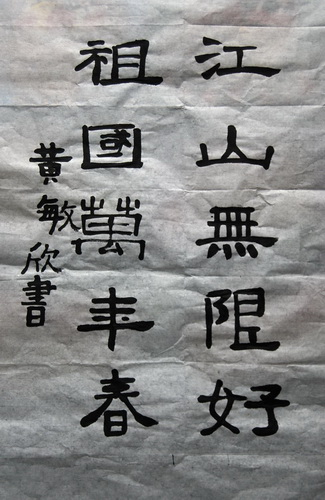 江山無限好
祖國萬年春
黄敏欣書